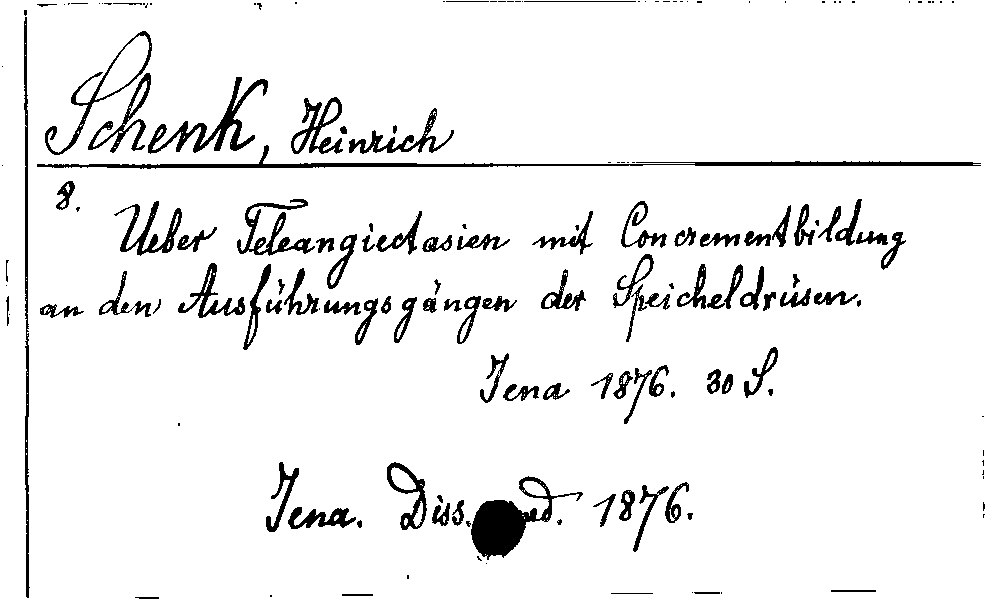 Schenk, Heinrich
8.
Ueber Teleangiectasien mit Concrementbildung
an den Ausführungsgängen der Speicheldrüsen.
Jena 1876. 30 S.
Jena. Diss. 1876.